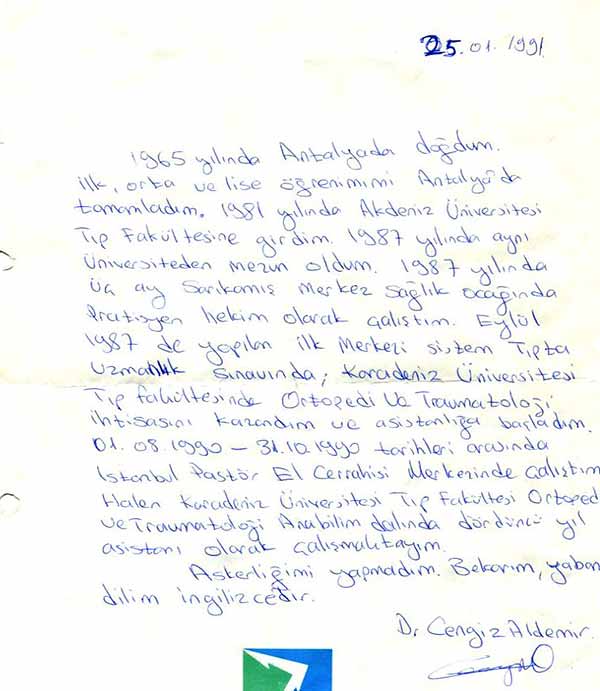 25.01.1991
1965 yılında Antalyada doğdum.
ilk, orta ve lise öğrenimimi Antalya'da
tamamladım. 1981 yılında Akdeniz Üniversitesi
Tıp Fakültesine girdim. 1987 yılında aynı
üniversiteden mezun oldum. 1987 yılında
üç ay Sarıkamış Merkez Sağlık ocağında
Pratisyen hekim olarak çalıştım. Eylül
1987 de yapılan ilk Merkezi sistem Tıpta
Uzmanlık Sınavında; Karadeniz Üniversitesi
Tıp fakültesinde Ortopedi Ve Traumatoloği
ihtisasını kazandım ve asistanlığa başladım.
01.08.1990 – 31.10.1990 tarihleri arasında
İstanbul Pastör El Cerrahisi Merkezinde çalıştım
Halen Karadeniz Üniversitesi Tıp Fakültesi Ortoped
ve Traumatoloği Anabilim dalında dördüncü yıl
asistanı olarak çalışmaktayım.
Askerliğimi yapmadım. Bekarım, yaban
dilim ingilizcedir.
Dr Cengiz Aldemir